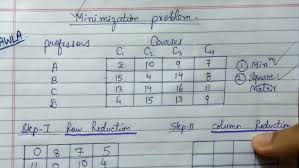 Minimization problem.
AWLA
Professors Courses
C1 C2 C3 C4
A 2 10 9 7
B 15 4 14 8
C 13 14 16 11
D 4 15 13 9
① Min^n
② Square Matrix
Step-I Row Reduction Step-II Column Reduction
0 8 7 5
11 0 10 4